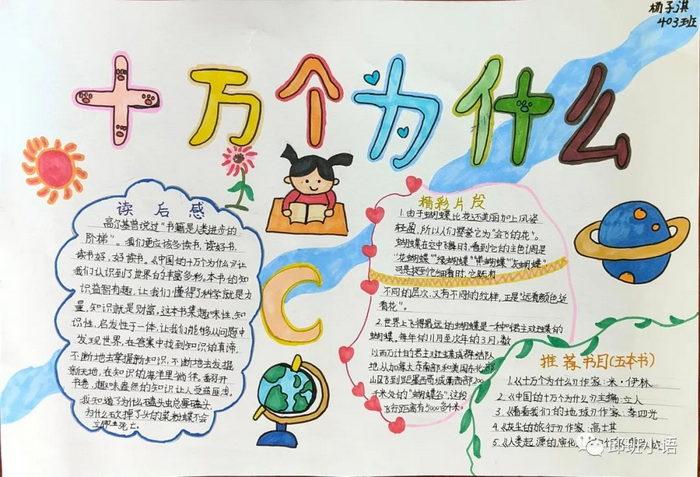 杨子淇
403班
十万个为什么
读后感
高尔基曾说过"书籍是人类进步的
阶梯"。我们更应该多读书,读好书,
读书好,好读书。《中国的十万个为什么》让
我们认识到了世界的丰富多彩。本书的知
识益智有趣,让我们懂得了科学就是力
量,知识就是财富。这本书集趣味性,知
识性,启发性于一体,让我们能够从问题中
发现世界,在答案中找到知识的真谛,
不断地去掌握新知识,不断地去发掘
新天地,在知识的海洋里徜徉。翻开
书卷,趣味盎然的知识让人受益匪浅,
我知道了为什么
为什么
立即死亡。
精彩片段
1.由于蝴蝶比花还美丽加上风姿
轻盈,所以人们赞誉它为"会飞的花"。
蝴蝶在空中飞舞时,看到它的主色调是
"花蝴蝶"
不同的层次,又有不同的纹样,正是"远看颜色近
看花"。
2.世界上飞得最远的蝴蝶是一种叫君主斑蝶的
蝴蝶,每年的11月至次年的3月,数
以百万计的君主斑蝶成群结队
地从加拿大东南部和美国东北部
山区飞到距墨西哥城西部200
千米处的"蝴蝶谷",这段
飞行距离有5000多千米。
推荐书目(五本书)
1.《十万个为什么》作家:米·伊林
2.《中国的十万个为什么》主编:立人
3.《看看我们的地球》作家:李四光
4.《灰尘的旅行》作家:高士其
5.《人类起源的演化
邱班小语